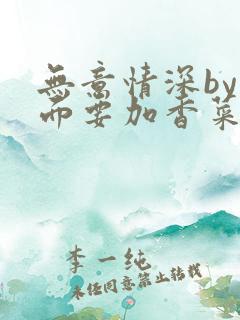 無意情深by
而要加香菜
李一純
未经同意禁止转载